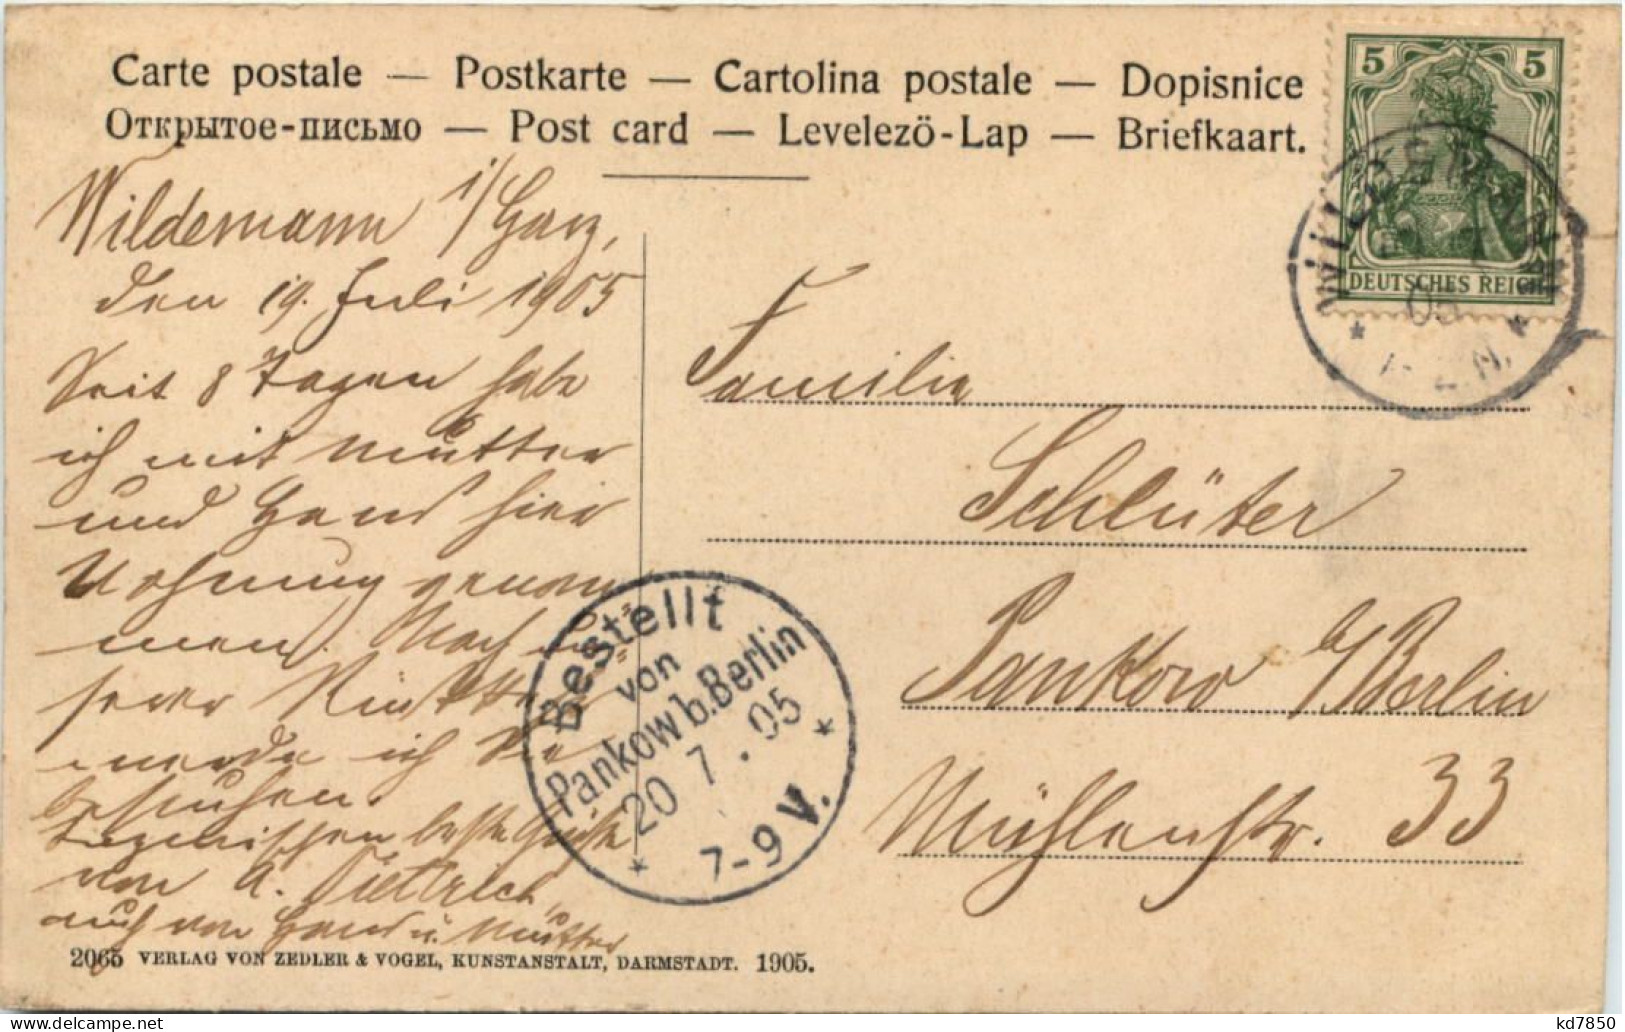 Carte postale — Postkarte — Cartolina postale — Dopisnice
Открытое-письмо — Post card — Levelezö-Lap — Briefkaart.
5 5
DEUTSCHES REICH
WILDEMANN
05
Wildemann i/Harz,
den 19. Juli 1905
Seit 8 Tagen habe
ich mit Mutter
und Hans hier
Wohnung genom-
men. Nach un-
serer Rückkehr
werde ich Sie
besuchen.
Inzwischen beste Grüße
von A. Dietrich,
auch von Hans u. Mutter
Familie
Schlüter
Pankow b/Berlin
Mühlenstr. 33
Bestellt
von
Pankow b. Berlin
20 7. 05
7-9 V.
2065 VERLAG VON ZEDLER & VOGEL, KUNSTANSTALT, DARMSTADT. 1905.
kd7850